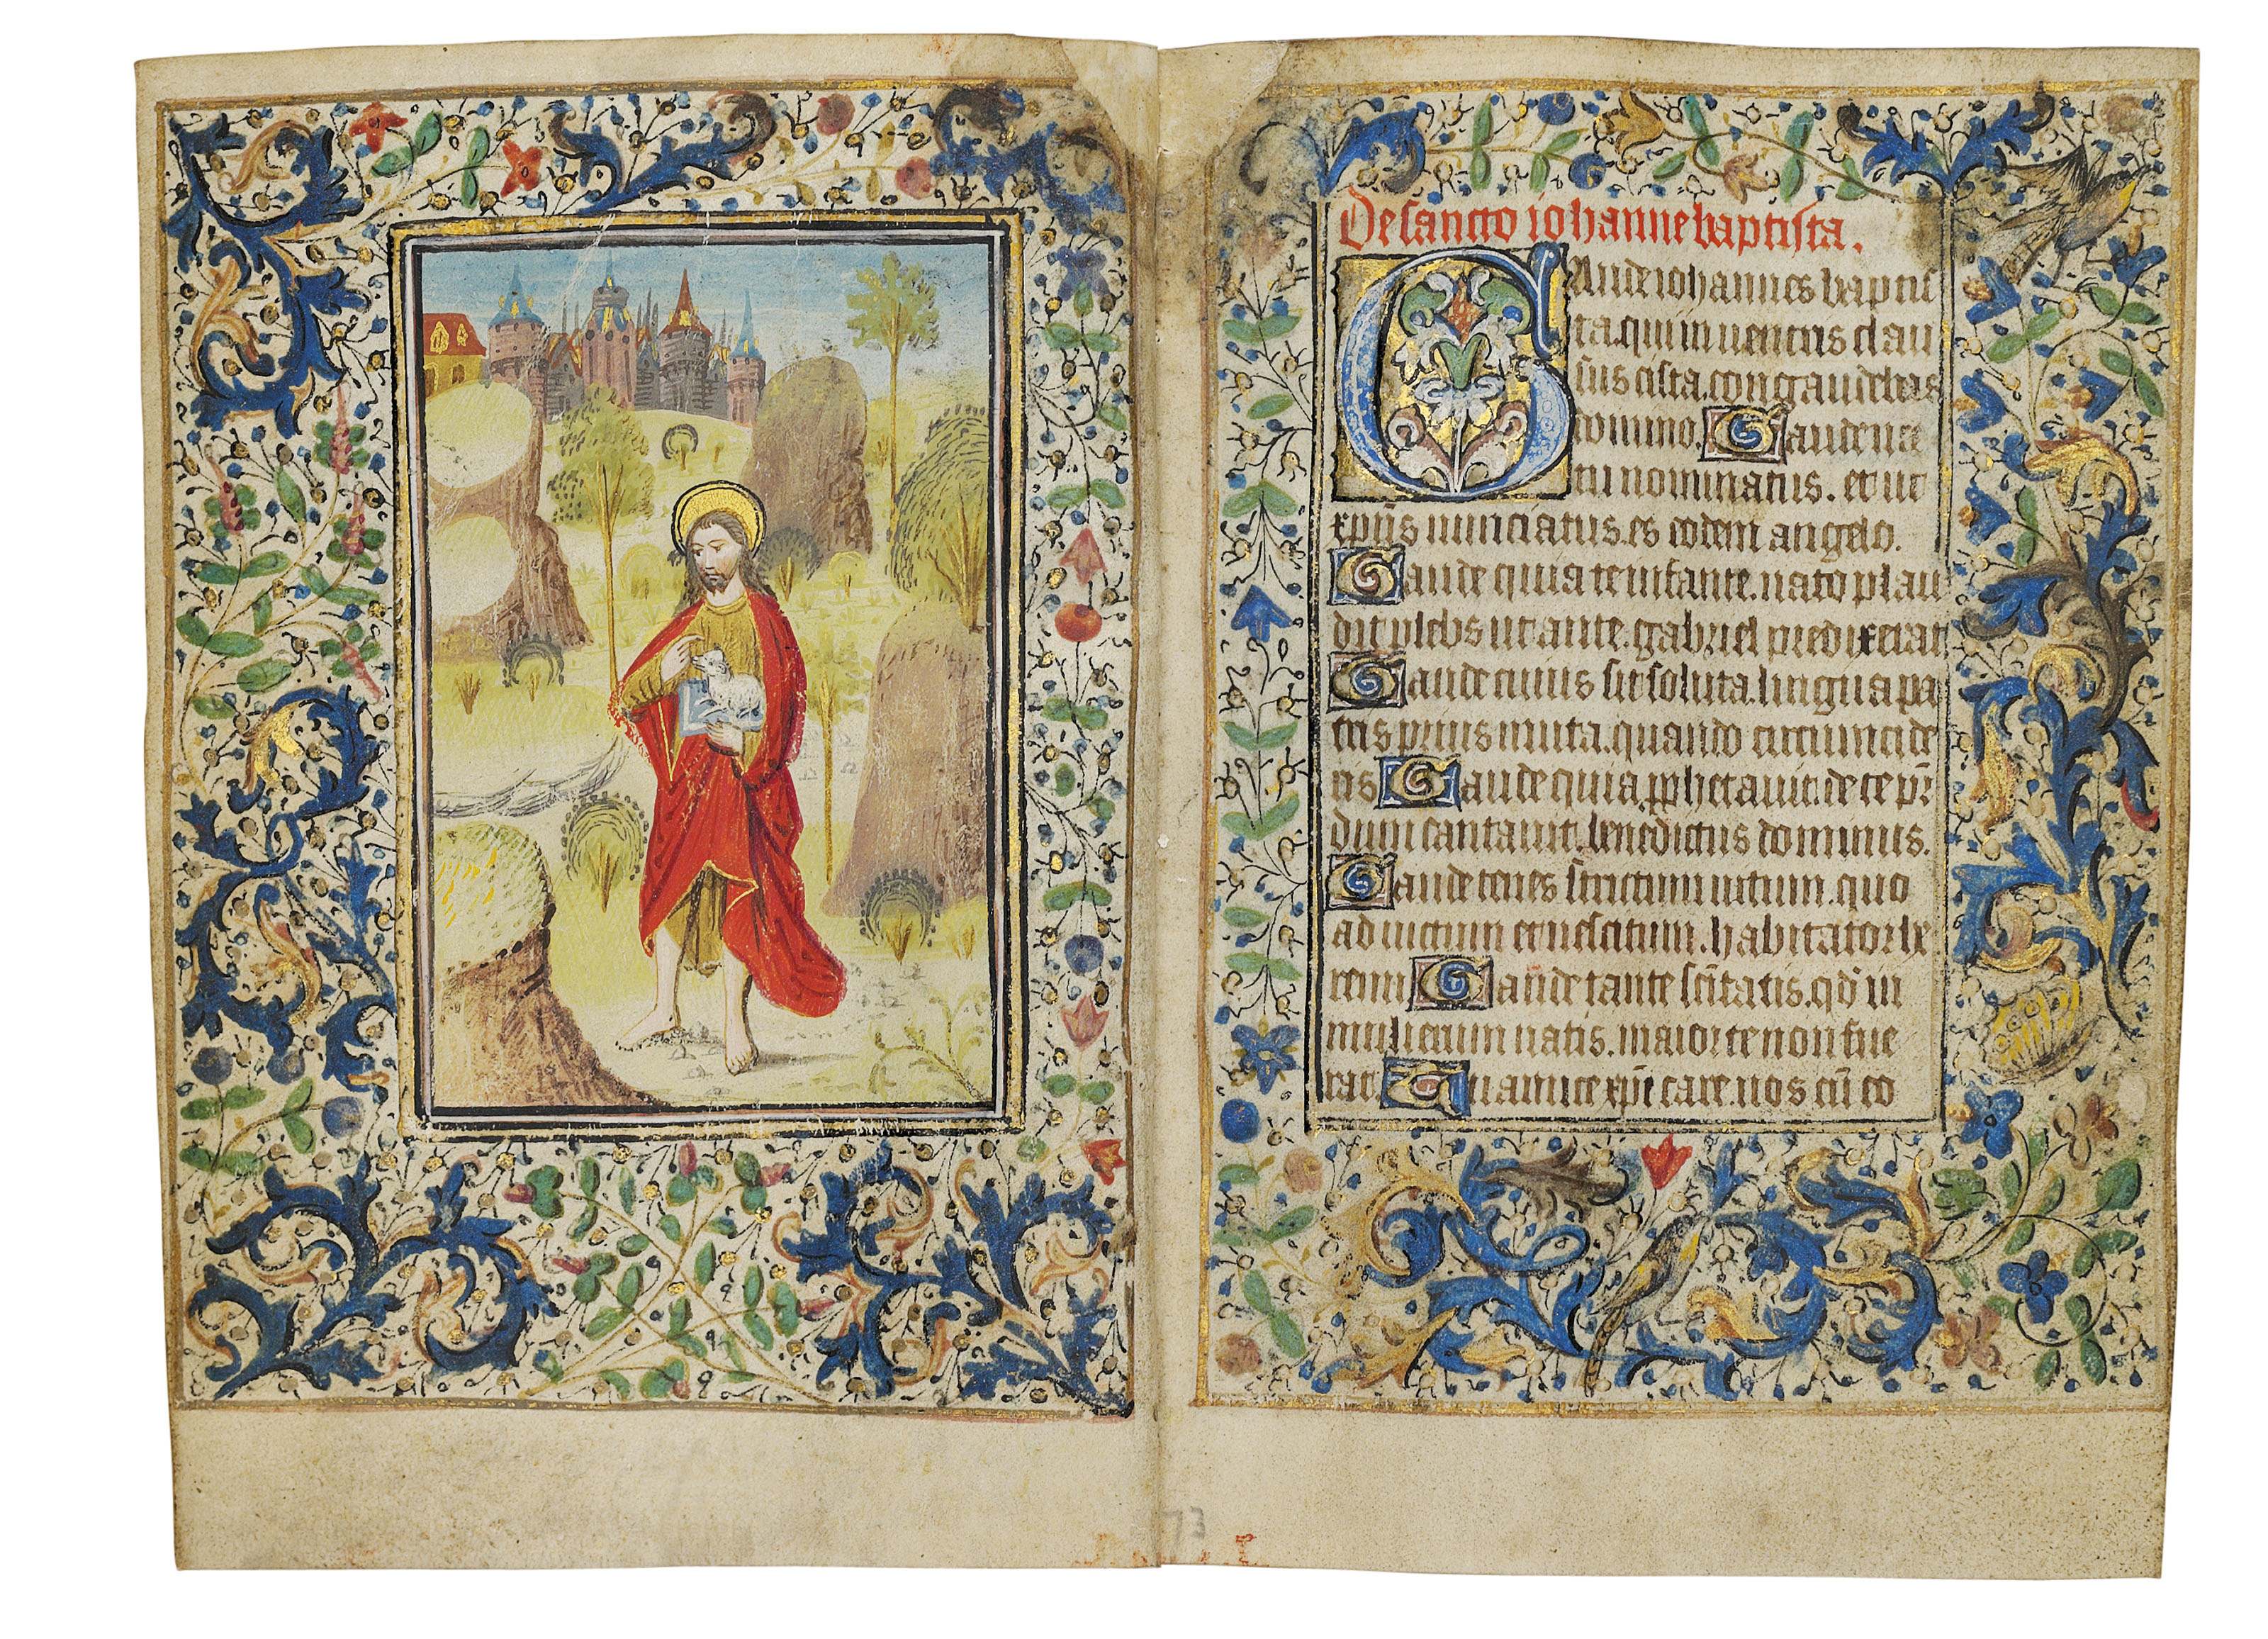 De sancto iohanne baptista.
Gaude iohannes baptis
ta. qui in uentris clau
sus cista. congaudebas
domino. Gaude uete
tu nominatus. et ut
xp̄us nunciatus. es eodem angelo.
Gaude quia te infante. nato plau
dit plebs ut ante. gabriel predixerat
Gaude cuius sit soluta. lingua pa
tris prius muta. quando circumcide
ris Gaude quia pphetauit. de te pr̄
dum cantauit. benedictus dominus.
Gaude tenes strictum uitum. quo
ad uictum et uestitum. habitator he
remi Gaude tante sc̄itatis. qd̄ in
mulierum natis. maior te non fue
rat. Qu amice xp̄i care. nos cū eo
73